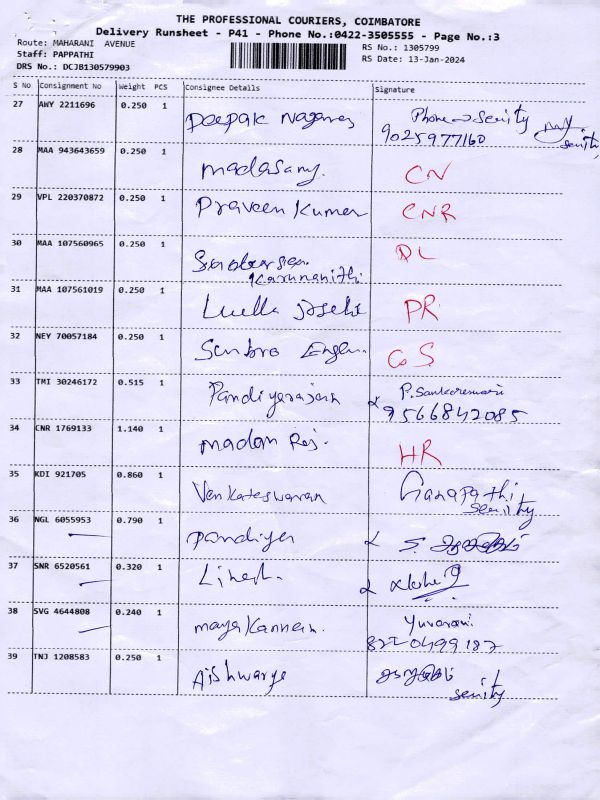 THE PROFESSIONAL COURIERS, COIMBATORE
Delivery Runsheet - P41 - Phone No.:0422-3505555 - Page No.:3
Route: MAHARANI AVENUE RS No.: 1305799
Staff: PAPPATHI RS Date: 13-Jan-2024
DRS No.: DCJB130579903
S No Consignment No Weight PCS Consignee Details Signature
27 AWY 2211696 0.250 1 Deepak Phone
9025977160
28 MAA 943643659 0.250 1 madasamy. CN
29 VPL 220370872 0.250 1 Praveen Kumar CNR
30 MAA 107560965 0.250 1 DL
Karunanithi
31 MAA 107561019 0.250 1 Luella PR
32 NEY 70057184 0.250 1
33 TMI 30246172 0.515 1 Pandiyarajan P.
9566842085
34 CNR 1769133 1.140 1 madan Raj. HR
35 KDI 921705 0.860 1 Venkateswaran Ganapathi
36 NGL 6055953 0.790 1 pandiyan
37 SNR 6520561 0.320 1
38 SVG 4644808 0.240 1 maya Kannan. Yuvarani
8220499187
39 TNJ 1208583 0.250 1 Aishwarya